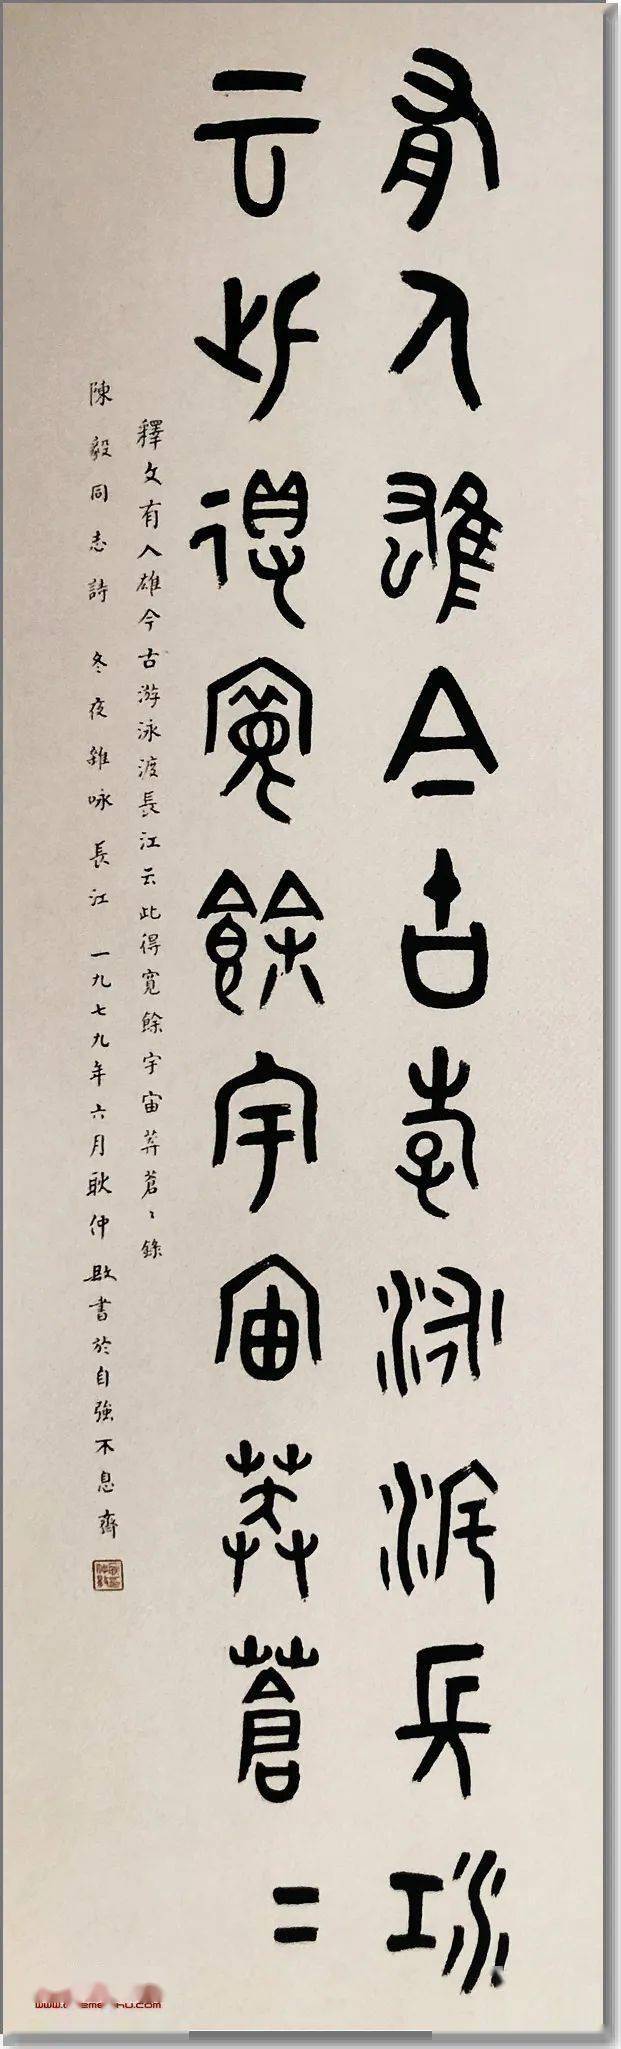 有人雄今古游泳渡長江
云此得寬餘宇宙莽蒼〻
釋文有人雄今古游泳渡長江云此得寬餘宇宙莽蒼〻錄
陳毅同志詩 冬夜雜咏 長江 一九七九年六月耿仲敭書於自強不息齋